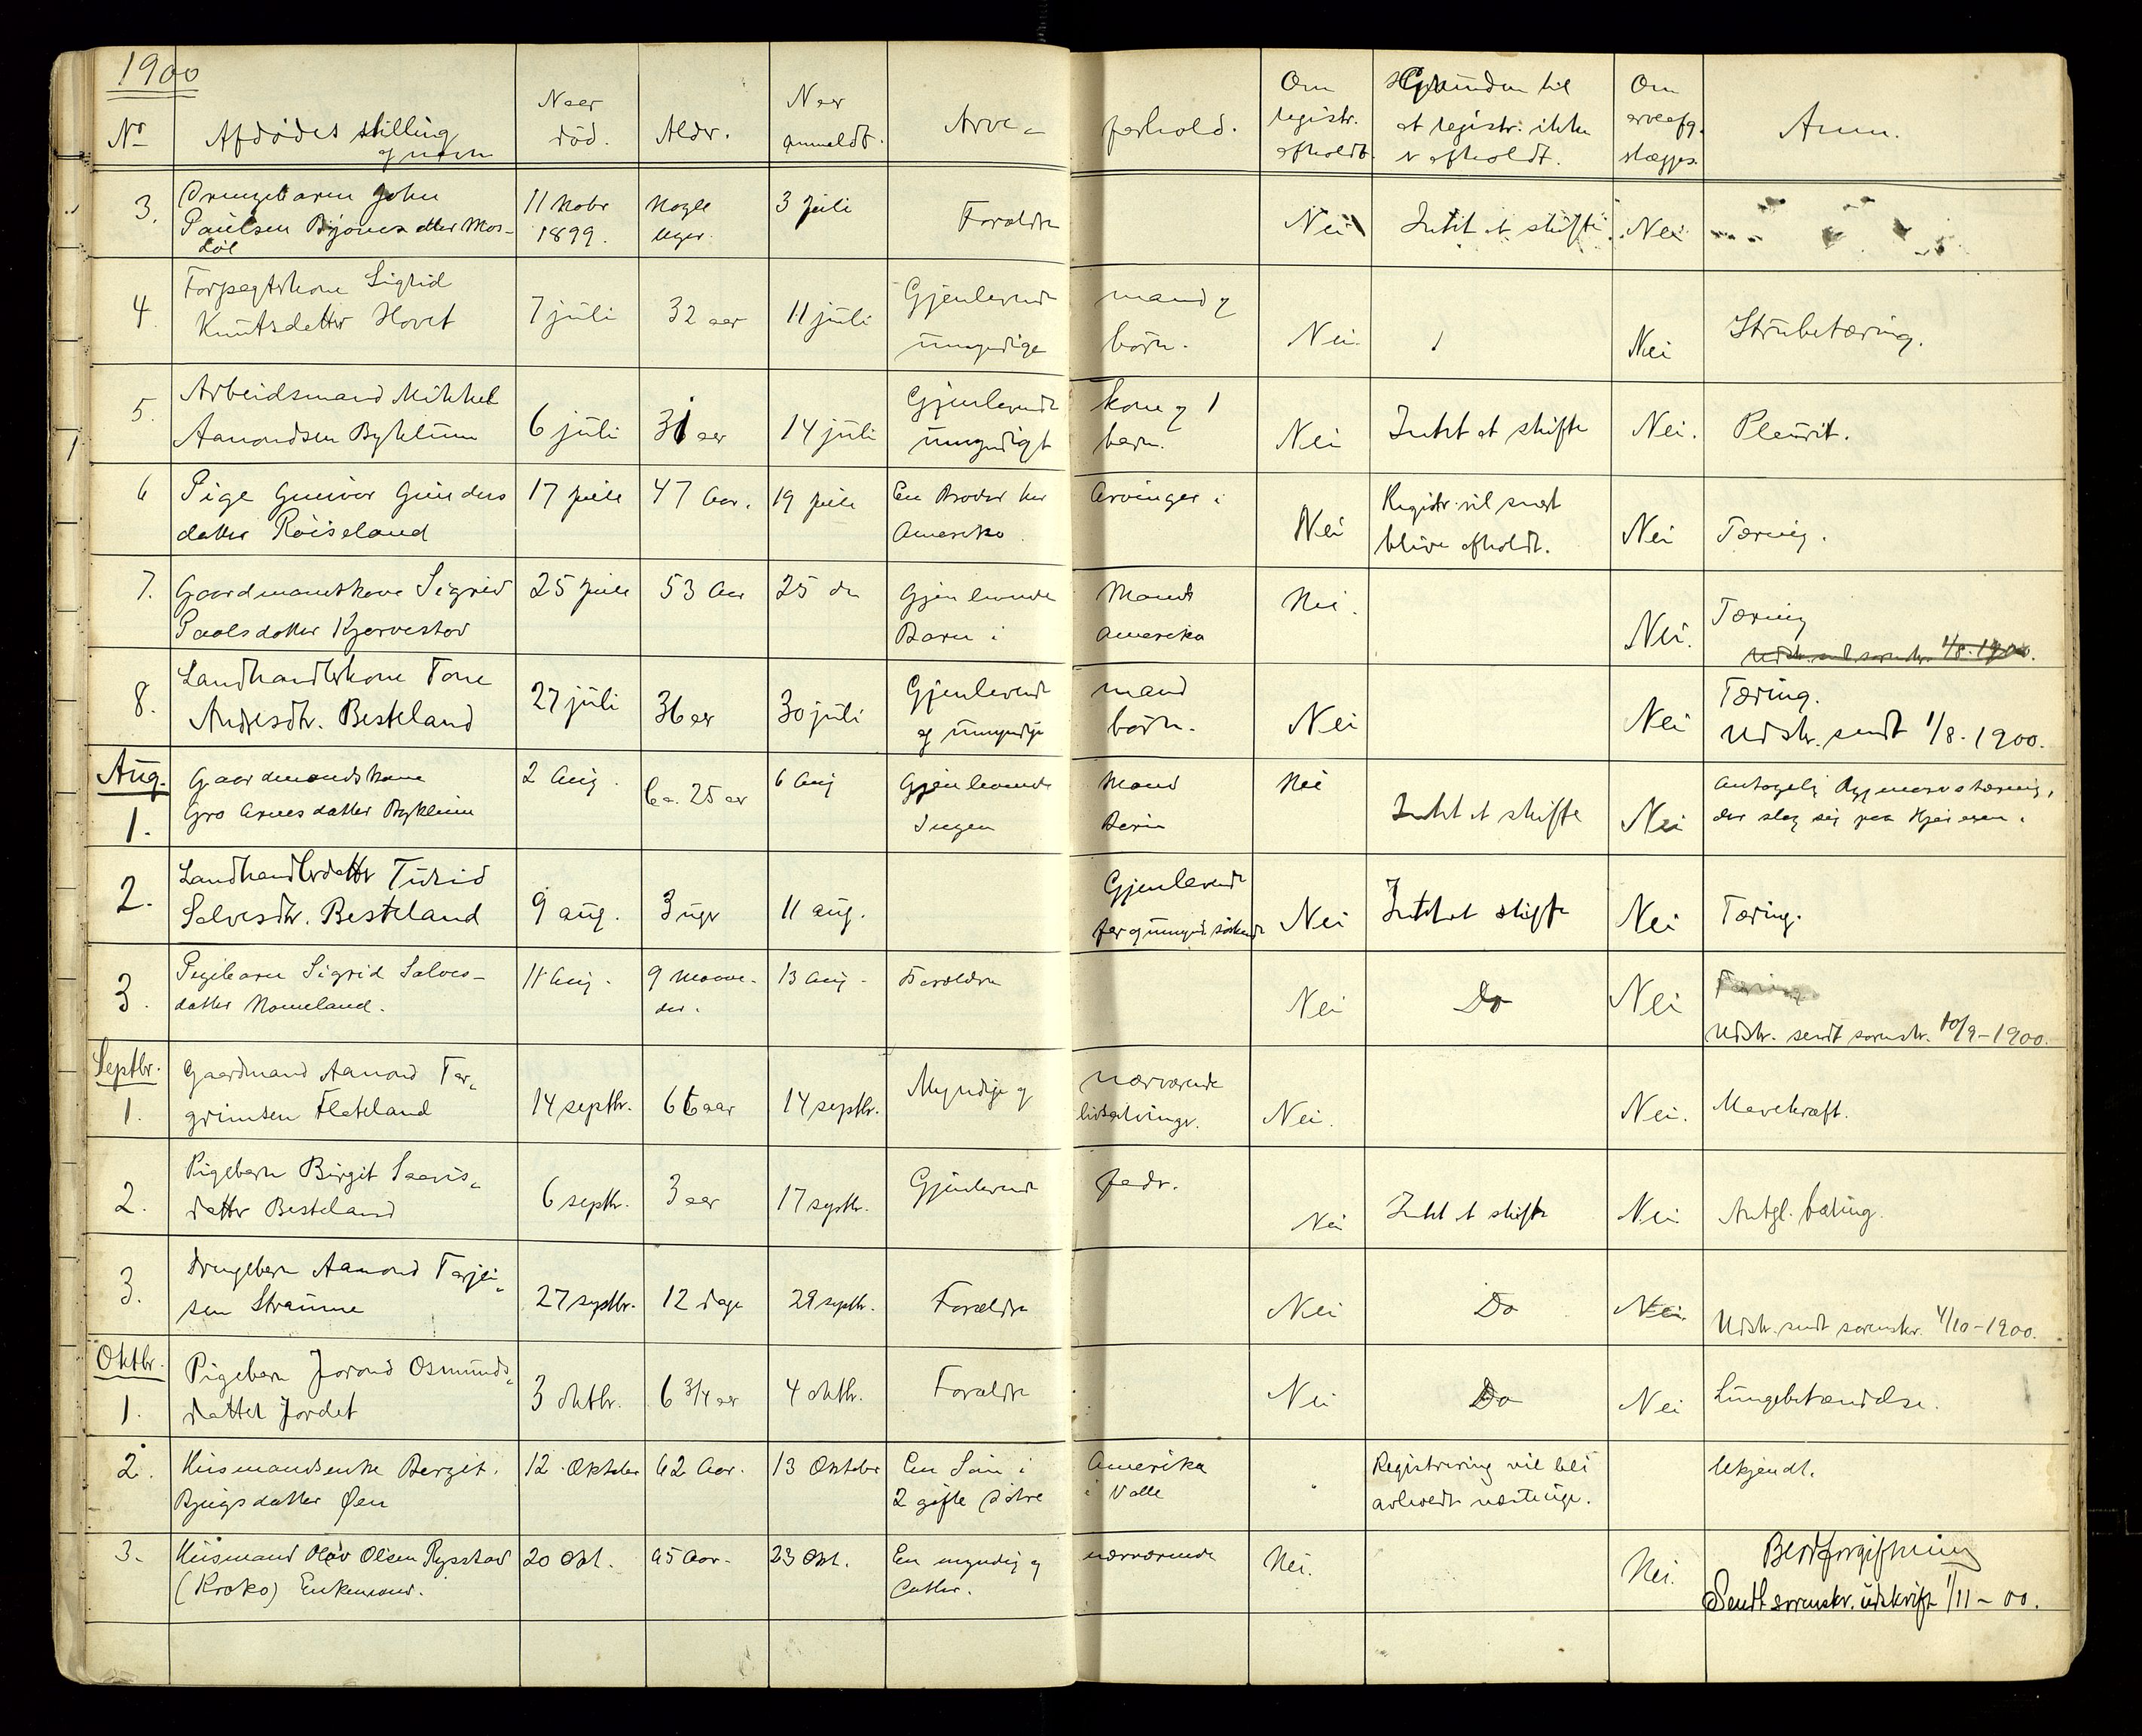 1900
No Afdödes stilling og navn Naar död. Alder. Naar anmeldt. Arve- forhold. Om registr. afholdt. Grunden til at registr. ikke er afholdt. Om arveafg. slægges. Anm.
3. Drengebarn John 11 Nobr Nogle 3 juli Forældre Nei Intet at skifte. Nei
Paulsen Bjönes eller Mos- 1899. uger.
döl
4. Forpagterkone Sigrid 7 juli 32 aar 11 juli Gjenlevende mand og Nei Nei Strubetæring.
Knutsdatter Hovet umyndige börn.
5. Arbeidsmand Mikkel 6 juli 31 aar 14 juli Gjenlevende kone og 1 Nei Intet at skifte Nei. Pleurit.
Aamondsen Byklum umyndigt barn.
6 Pige Gunvor Gunders 17 juli 47 Aar. 19 juli En Broder har Arvinger i Nei Registr. vil snart Nei Tæring.
datter Röiseland Amerika blive afholdt.
7. Gaardmandskone Sigrid 25 juli 53 Aar 25 ds Gjenlevende Mand Nei. Nei. Tæring
Paalsdatter Kjørvestad Barn i Amerika Udskr. sendt sorenskr. 1/8-1900.
8. Landhandlerkone Tone 27 juli 36 aar 30 juli Gjenlevende mand Nei Nei Tæring.
Andresdtr. Besteland og umyndige börn. Udskr. sendt 1/8-1900.
Aug.
1. Gaardmandskone 2 Aug. Ca. 25 aar 6 Aug Gjenlevende Mand Nei Intet at skifte Nei Antagelig Rygmarvstæring,
Gro Arnesdatter Byklum Ingen Börn der slog sig paa Hjernen.
2. Landhandlerdatter Turid 9 aug. 3 uger 11 aug. Gjenlevende Nei Intet at skifte Nei Tæring.
Salvesdtr. Besteland far og umynd. söskende
3. Pigebarn Sigrid Salves- 11 Aug. 9 Maane- 13 Aug. Forældre Nei Do Nei Tæring
datter Nomeland. der. Udskr. sendt sorenskr. 10/9-1900.
Septbr.
1. Gaardmand Aamond Tar- 14 septbr. 66 aar 14 septbr. Myndige og nærværende Nei. Nei. Mavekræft.
grimsen Flateland livsarvinger.
2. Pigebarn Birgit Saavis- 6 septbr. 3 aar 17 septbr. Gjenlevende fader. Nei Intet at skifte Nei Antgl. tæring.
datter Besteland
3. Drengebarn Aamond Tarjei- 27 septbr. 12 dage 29 septbr. Forældre Nei Do Nei.
sen Straume Udskr. sendt sorenskr. 4/10-1900.
Oktbr.
1. Pigebarn Jorond Osmunds- 3 oktbr. 6 3/4 aar 4 oktbr. Forældre Nei Do Nei Lungebetændelse.
datter Jordet
2. Husmandsenke Bergit 12 Oktober 62 Aar. 13 Oktober En Sön i Amerika Registrering vil bli Ukjendt.
Bjugsdatter Øen 2 gifte Döttre i Valle avholdt
3. Husmand Olav Olsen Rysstad 20 Okt. 65 Aar. 23 Okt. En myndig og nærværende Nei. Nei. Blodforgiftning
(Kroko) Enkemand. Datter. Sendt sorenskr. udskrift 1/11-00.